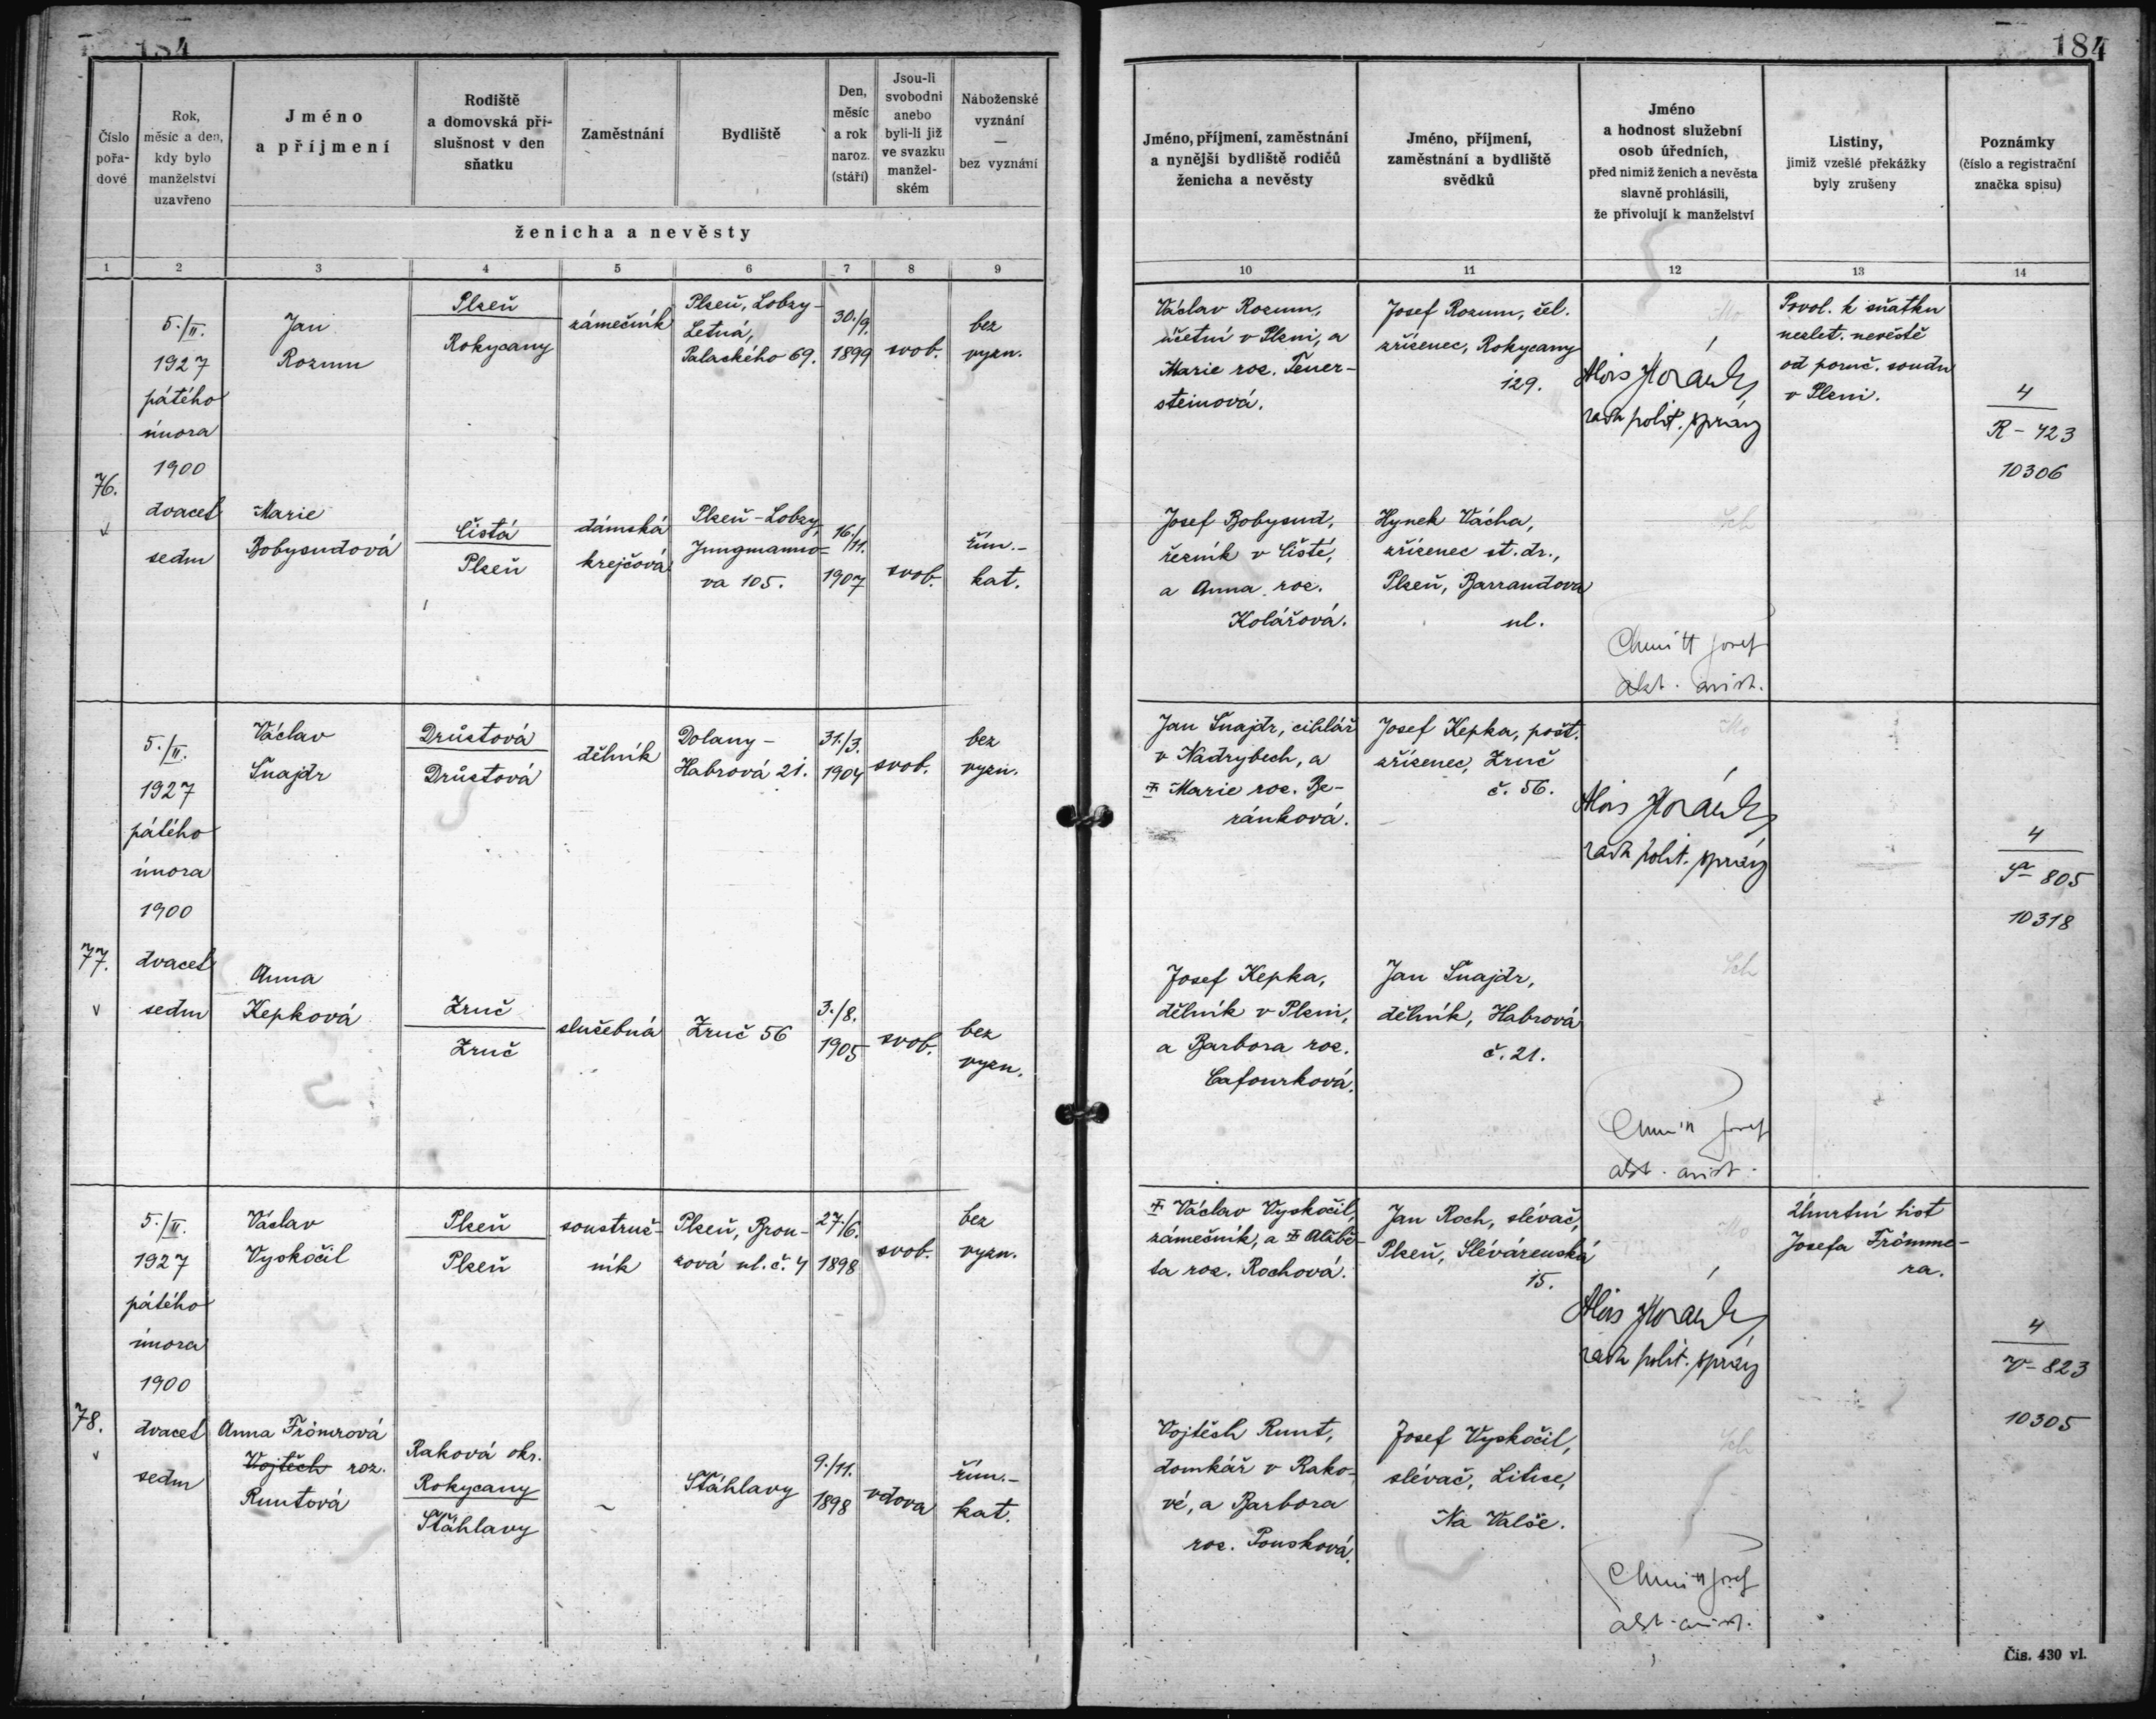 184
184
Číslo pořadové
Rok, měsíc a den, kdy bylo manželství uzavřeno
Jméno a příjmení
Rodiště a domovská příslušnost v den sňatku
Zaměstnání
Bydliště
Den, měsíc a rok naroz. (stáří)
Jsou-li svobodni anebo byli-li již ve svazku manželském
Náboženské vyznání — bez vyznání
ženicha a nevěsty
Jméno, příjmení, zaměstnání a nynější bydliště rodičů ženicha a nevěsty
Jméno, příjmení, zaměstnání a bydliště svědků
Jméno a hodnost služební osob úředních, před nimiž ženich a nevěsta slavně prohlásili, že přivolují k manželství
Listiny, jimiž vzešlé překážky byly zrušeny
Poznámky (číslo a registrační značka spisu)
1 2 3 4 5 6 7 8 9 10 11 12 13 14
76.
5./II.
1927
pátého
února
1900
dvacet
sedm
Jan
Rozum
Plzeň
Rokycany
zámečník
Plzeň, Lobzy-
Letná,
Palackého 69.
30./9.
1899
svob.
bez
vyzn.
Václav Rozum,
účetní v Plzni, a
Marie roz. Feuer-
steinová.
Josef Rozum, žel.
zřízenec, Rokycany
129.
Alois Horák
rada polit. správy
Povol. k sňatku
nezlet. nevěstě
od poruč. soudu
v Plzni.
4
R - 423
10306
Marie
Bobysudová
Čistá
Plzeň
dámská
krejčová
Plzeň-Lobzy,
Jungmanno-
va 105.
16./11.
1907
svob.
řím.-
kat.
Josef Bobysud,
řezník v Čisté,
a Anna roz.
Kolářová.
Hynek Vácha,
zřízenec st. dr.,
Plzeň, Barrandova
ul.
Josef
77.
5./II.
1927
pátého
února
1900
dvacet
sedm
Václav
Šnajdr
Drůstová
Drůstová
dělník
Dolany-
Habrová 21.
31./3.
1904
svob.
bez
vyzn.
Jan Šnajdr, cihlář
v Nadrybech, a
Marie roz. Be-
ránková.
Josef Kepka, pošt.
zřízenec, Zruč
č. 56.
Alois Horák
rada polit. správy
4
Š- 805
10318
Anna
Kepková
Zruč
Zruč
služebná
Zruč 56
3./8.
1905
svob.
bez
vyzn.
Josef Kepka,
dělník v Plzni,
a Barbora roz.
Cafourková.
Jan Šnajdr,
dělník, Habrová
č. 21.
Josef
78.
5./II.
1927
pátého
února
1900
dvacet
sedm
Václav
Vyskočil
Plzeň
Plzeň
soustruž-
ník
Plzeň, Bron-
zová ul. č. 4
27./6.
1898
svob.
bez
vyzn.
Václav Vyskočil,
zámečník, a Alžbě-
ta roz. Rochová.
Jan Roch, slévač,
Plzeň, Slévárenská
15.
Alois Horák
rada polit. správy
Úmrtní list
Josefa Frömme-
ra.
4
V- 823
10305
Anna Frömrová
Vojtěch roz.
Runtová
Raková okr.
Rokycany
Šťáhlavy
-
Šťáhlavy
9./11.
1898
vdova
řím.-
kat.
Vojtěch Runt,
domkář v Rako-
vé, a Barbora
roz. Poušková.
Josef Vyskočil,
slévač, Litice,
Na Valše.
Josef
Čís. 430 vl.